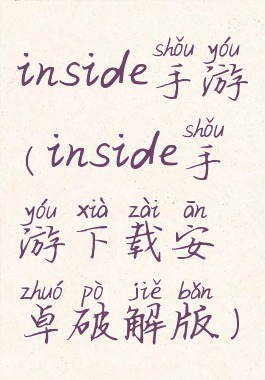 shǒu yóu
inside手游
shǒu
(inside手
yóu xià zài ān
游下载安
zhuó pò jiě bǎn
卓破解版)